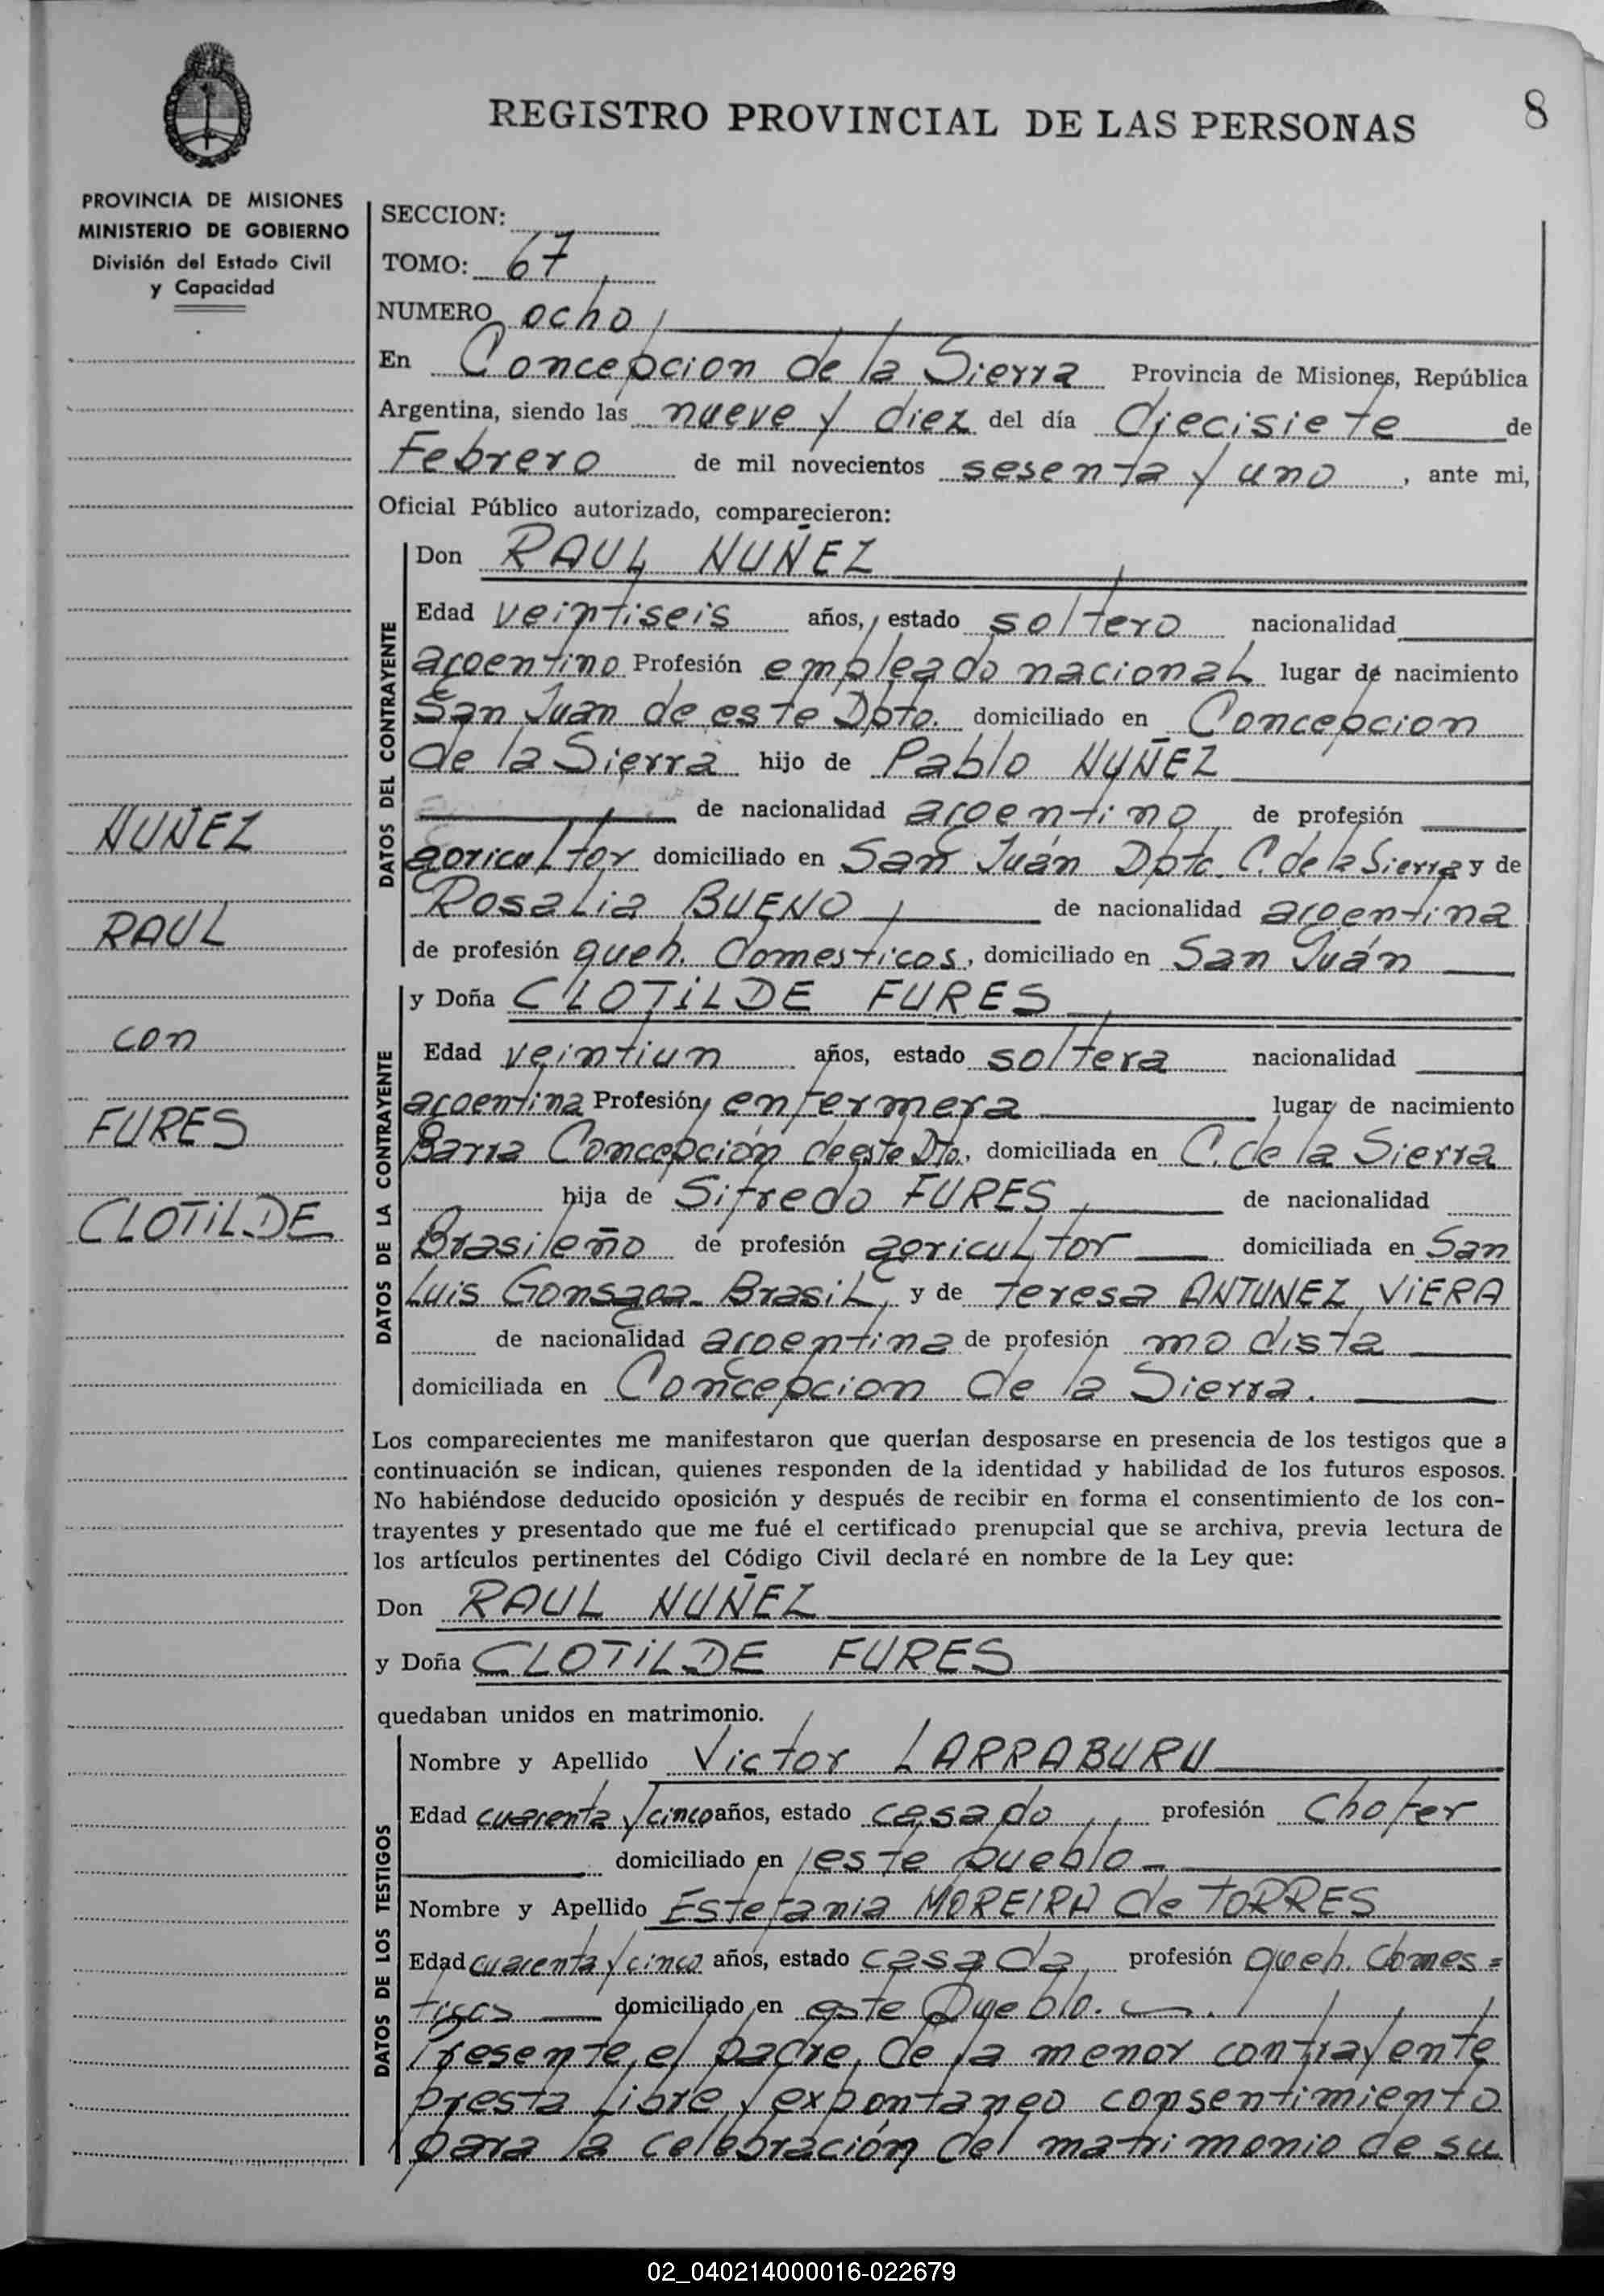 REGISTRO PROVINCIAL DE LAS PERSONAS
8
PROVINCIA DE MISIONES
MINISTERIO DE GOBIERNO
División del Estado Civil
y Capacidad
NUÑEZ
RAUL
con
FURES
CLOTILDE
SECCION:
TOMO: 67
NUMERO ocho
En Concepcion de la Sierra Provincia de Misiones, República
Argentina, siendo las nueve y diez del día diecisiete de
Febrero de mil novecientos sesenta y uno, ante mi,
Oficial Público autorizado, comparecieron:
DATOS DEL CONTRAYENTE
Don RAUL NUÑEZ
Edad veintiseis años, estado soltero nacionalidad
argentino Profesión empleado nacional lugar de nacimiento
San Juan de este Dpto. domiciliado en Concepcion
de la Sierra hijo de Pablo NUÑEZ
de nacionalidad argentino de profesión
agricultor domiciliado en San Juán Dpto. C. de la Sierra y de
Rosalia BUENO de nacionalidad argentina
de profesión queh. domesticos, domiciliado en San Juán
DATOS DE LA CONTRAYENTE
y Doña CLOTILDE FURES
Edad veintiun años, estado soltera nacionalidad
argentina Profesión enfermera lugar de nacimiento
Barra Concepción de este Dto., domiciliada en C. de la Sierra
hija de Sifredo FURES de nacionalidad
Brasileño de profesión agricultor domiciliada en San
Luis Gonsaga Brasil, y de Teresa ANTUNEZ VIERA
de nacionalidad argentina de profesión modista
domiciliada en Concepcion de la Sierra.
Los comparecientes me manifestaron que querían desposarse en presencia de los testigos que a
continuación se indican, quienes responden de la identidad y habilidad de los futuros esposos.
No habiéndose deducido oposición y después de recibir en forma el consentimiento de los con-
trayentes y presentado que me fué el certificado prenupcial que se archiva, previa lectura de
los artículos pertinentes del Código Civil declaré en nombre de la Ley que:
Don RAUL NUÑEZ
y Doña CLOTILDE FURES
quedaban unidos en matrimonio.
DATOS DE LOS TESTIGOS
Nombre y Apellido Victor LARRABURU
Edad cuarenta y cinco años, estado casado profesión Chofer
domiciliado en este pueblo
Nombre y Apellido Estefania MOREIRA de TORRES
Edad cuarenta y cinco años, estado casada profesión queh. domes=
ticos domiciliado en este Pueblo.
Presente el padre de la menor contrayente
presta libre y expontaneo consentimiento
para la celebración del matrimonio de su
02_040214000016-022679